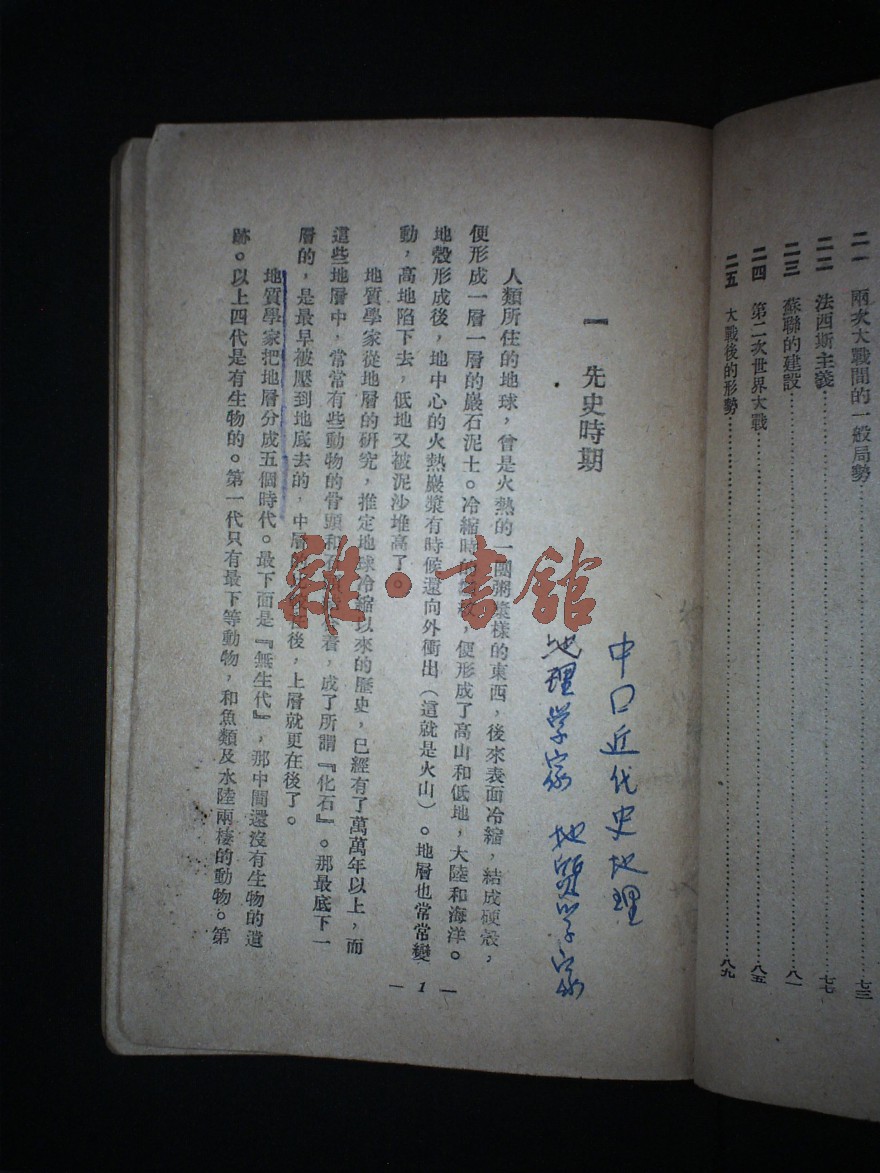 二一 兩次大戰間的一般局勢……七三
二二 法西斯主義……七七
二三 蘇聯的建設……八一
二四 第二次世界大戰……八五
二五 大戰後的形勢……八九
一 先史時期
中口近代史地理
地理学家 地質学家
人類所住的地球，曾是火熱的一團粥漿樣的東西，後來表面冷縮，結成硬殼，
便形成一層一層的巖石泥土。冷縮時，便形成了高山和低地，大陸和海洋。
地殼形成後，地中心的火熱巖漿有時候還向外衝出（這就是火山）。地層也常常變
動，高地陷下去，低地又被泥沙堆高了。
地質學家從地層的研究，推定地球冷縮以來的歷史，已經有了萬萬年以上，而
這些地層中，常常有些動物的骨頭和着，成了所謂『化石』。那最底下一
層的，是最早被壓到地底去的，中層後，上層就更在後了。
地質學家把地層分成五個時代。最下面是『無生代』，那中間還沒有生物的遺
跡。以上四代是有生物的。第一代只有最下等動物，和魚類及水陸兩棲的動物。第
— 1 —
雜·書館